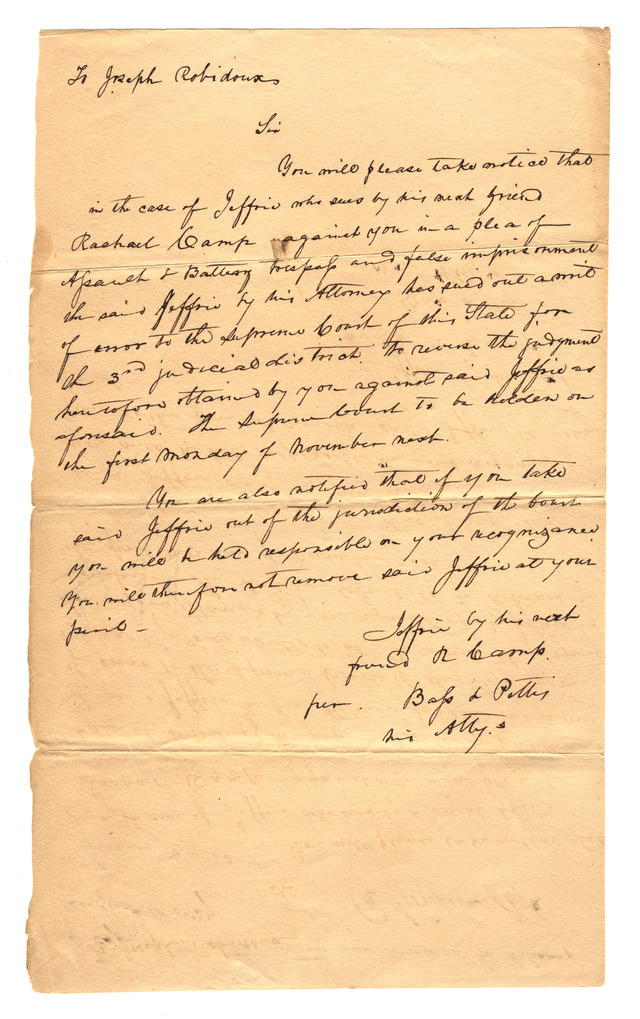 To Joseph Robidoux
Sir
You will please take notice that
in the case of Jeffrie who sues by his next friend
Rachael Camp against you in a plea of
Assault & Battery trespass and false imprisonment
the said Jeffrie by his Attorney has sued out a writ
of error to the Supreme Court of this State for
the 3rd judicial district to reverse the judgment
heretofore obtained by you against said Jeffrie as
aforesaid. The Supreme Court to be holden on
the first Monday of November next.
You are also notified that if you take
said Jeffrie out of the jurisdiction of the Court
you will be held responsible on your recognizance
You will therefore not remove said Jeffrie at your
peril -
Jeffrie by his next
friend R Camp.
per. Bass & Pettis
his Attys